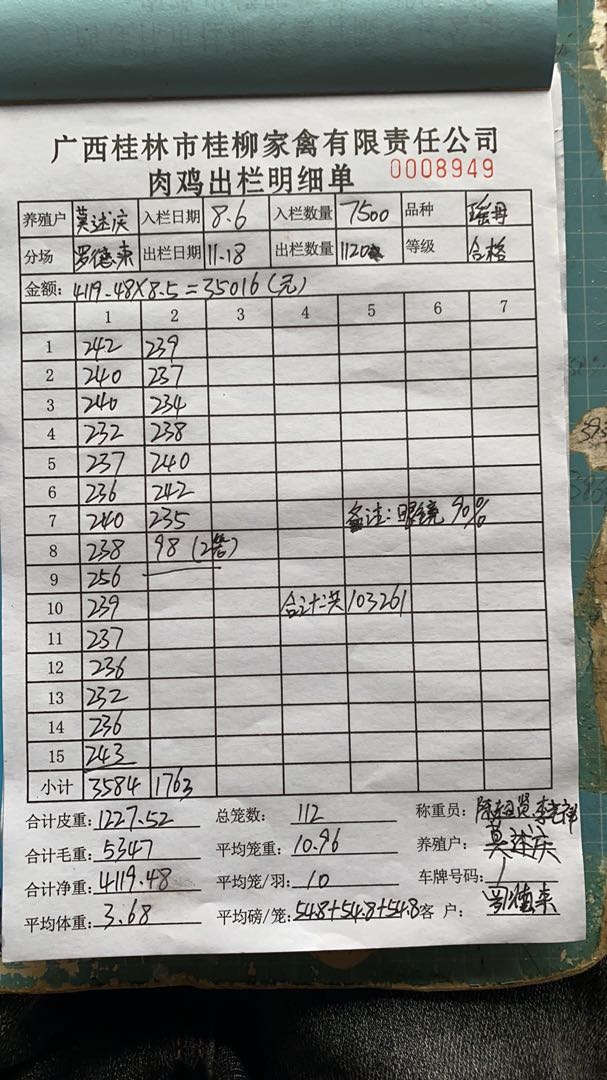 广西桂林市桂柳家禽有限责任公司
肉鸡出栏明细单 0008949
养殖户 莫述庆 入栏日期 8.6 入栏数量 7500 品种 瑶丹
分场 罗德来 出栏日期 11.18 出栏数量 1120 等级 合格
金额: 419.48×8.5=35016(元)
1 2 3 4 5 6 7
1 242 239
2 240 237
3 240 234
4 232 238
5 237 240
6 236 242
7 240 235 备注:眼镜90%
8 238 98(2笼)
9 256
10 239 合计:共103261
11 237
12 236
13 232
14 236
15 243
小计 3584 1763
合计皮重: 1227.52 总笼数: 112 称重员:
合计毛重: 5347 平均笼重: 10.96 养殖户: 莫述庆
合计净重: 4119.48 平均笼/羽: 10 车牌号码: /
平均体重: 3.68 平均磅/笼: 54.8+54.8+54.8 客户: 罗德来